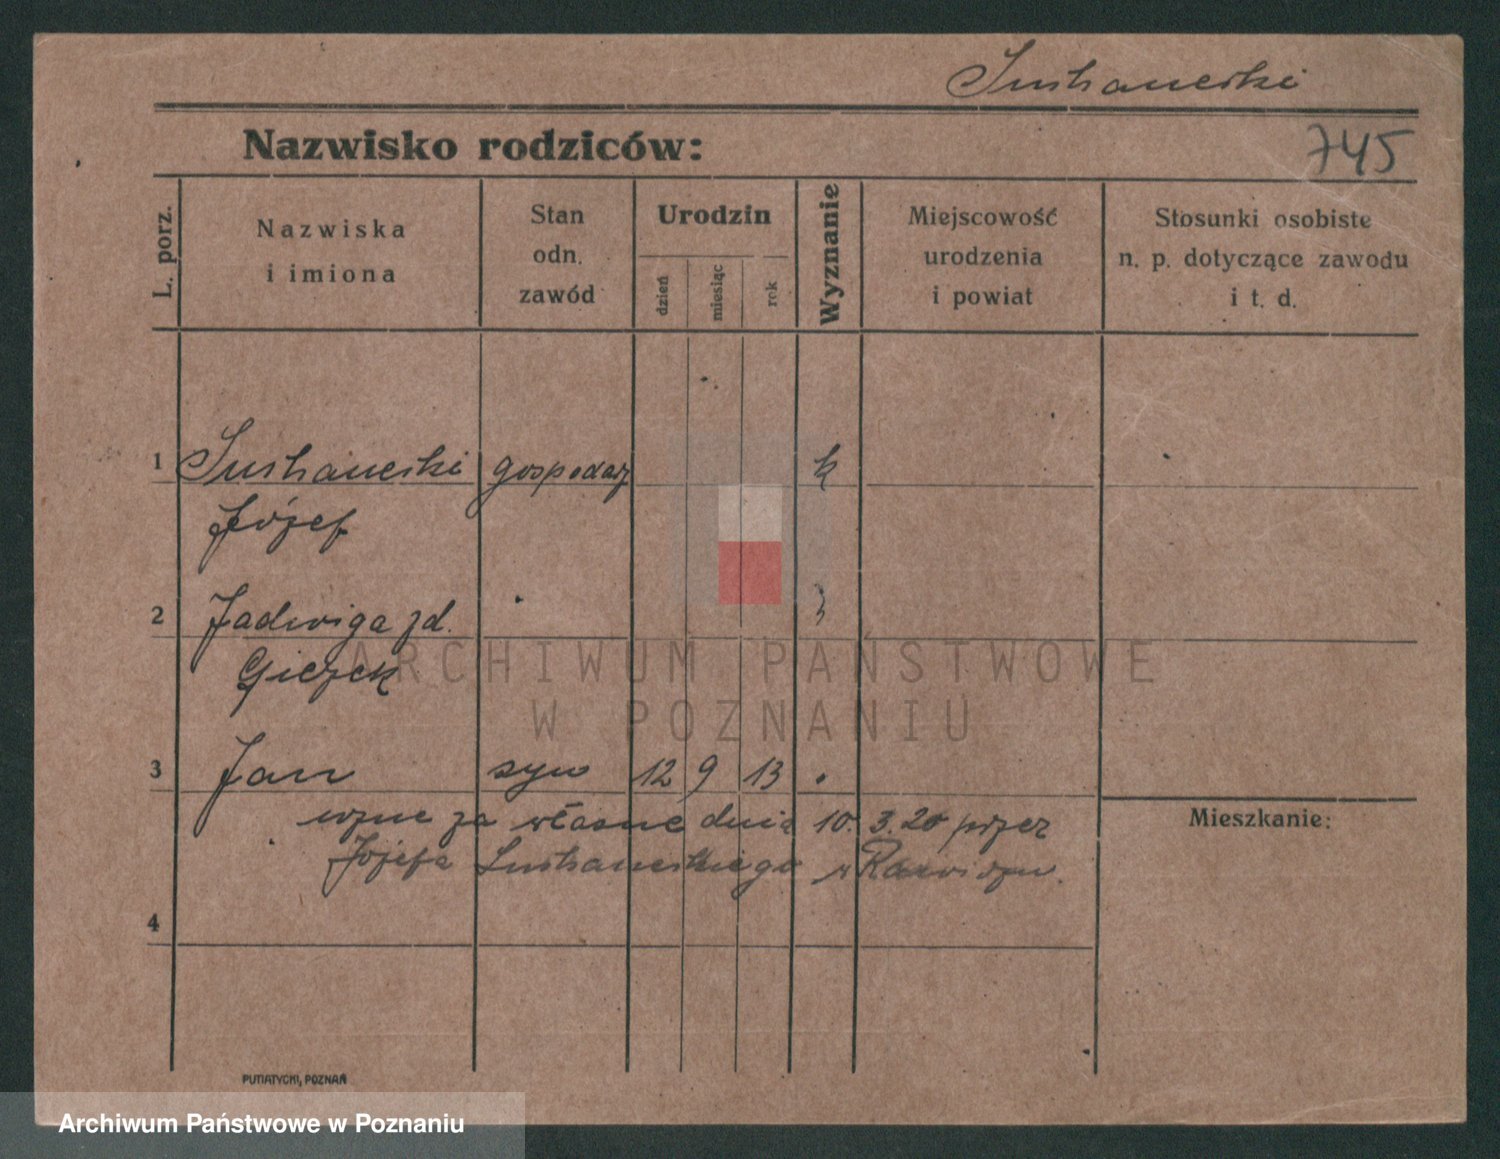 Suchanecki
745
Nazwisko rodziców:
L. porz.
Nazwiska
i imiona
Stan
odn.
zawód
Urodzin
dzień
miesiąc
rok
Wyznanie
Miejscowość
urodzenia
i powiat
Stosunki osobiste
n. p. dotyczące zawodu
i t. d.
1 gospodarz k
Józef
2 Jadwiga zd.
3 Jan syn 12 9 13
za własne dnia 10. 3. 20 przez
Józefa
Mieszkanie:
4
PUTIATYCKI, POZNAŃ
ARCHIWUM PAŃSTWOWE
W POZNANIU
Archiwum Państwowe w Poznaniu